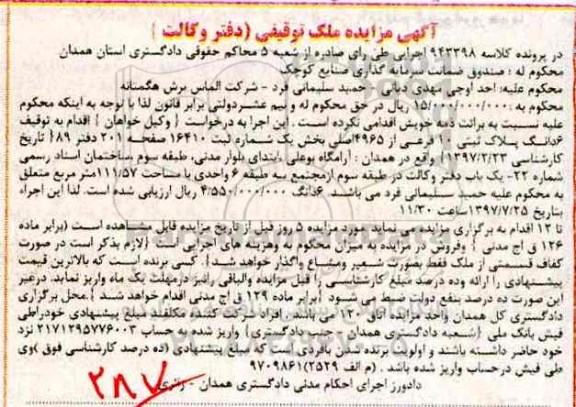 آگهی مزایده ملک توقیفی (دفتر وکالت)
در پرونده کلاسه ۹۴۳۳۹۸ اجرایی طی رای صادره از شعبه ۵ محاکم حقوقی دادگستری استان همدان
محکوم له : صندوق ضمانت سرمایه گذاری صنایع کوچک
محکوم علیه: احد اوجی مهدی دباق - حمید سلیمانی فرد - شرکت الماس برش هگمتانه
محکوم به : ۱۵/۰۰۰/۰۰۰/۰۰۰ ریال در حق محکوم له و نیم عشر دولتی برابر قانون لذا با توجه به اینکه محکوم
علیه نسبت به برائت ذمه خویش اقدامی نکرده است . این اجرا به درخواست { وکیل خواهان } اقدام به توقیف
۶دانگ پلاک ثبتی فرعی از ۴۹۶۵اصلی بخش یک شماره ثبت ۱۶۴۱۰ صفحه ۲۰۱ دفتر ۸۹{ تاریخ
کارشناسی ۱۳۹۷/۲/۲۳} واقع در همدان : آرامگاه بوعلی ،ابتدای بلوار مدنی، طبقه سوم ،ساختمان اسناد رسمی
شماره ۲۲- یک باب دفتر وکالت در طبقه سوم ازمجتمع سه طبقه ۶ واحدی با مساحت ۱۱۱/۵۷متر مربع متعلق
به محکوم علیه حمید سلیمانی فرد می باشد. ۶دانگ ۴/۵۵۰/۰۰۰/۰۰۰ ریال ارزیابی شده است. لذا این اجراء
بتاریخ ۱۳۹۷/۷/۲۵ساعت ۱۱:۳۰
تا ۱۲ اقدام به برگزاری مزایده می نماید. مورد مزایده ۵ روز قبل از تاریخ مزایده قابل مشاهده است (برابر ماده
۱۲۶ ق اج مدنی ) وفروش در مزایده به میزان محکوم به وهزینه های اجرایی است {لازم بذکر است در صورت
کفاف قسمتی از ملک فقط بصورت شعیر ومشاع واگذار خواهد شد}. کسی برنده است که بالاترین قیمت
پیشنهادی را ارائه وده درصد مبلغ کارشناسی را قبل مزایده والباقی رانیز درمهلت یک ماه واریز نماید. درغیر
این صورت ده درصد بنفع دولت ضبط می شود {برابر ماده ۱۲۹ ق اج مدنی اقدام خواهد شد }.محل برگزاری
دادگستری کل همدان واحد مزایده اتاق ۱۳۰ می باشد . افراد شرکت کننده مکلفند مبلغ پیشنهادی خودراطی
فیش بانک ملی {شعبه دادگستری همدان - جنب دادگستری} واریز شده به حساب ۲۱۷۱۲۹۵۷۷۶۰۰۳ نزد
خود حاضر داشته باشند و اولویت برنده شدن بافردی است که مبلغ پیشنهادی (ده درصد کارشناسی فوق )وی
طی فیش درحساب واریز شده باشد . (م الف ۲۵۲۹)۹۷۰۹۸۶۱
دادورز اجرای احکام مدنی دادگستری همدان -
۲۸۷